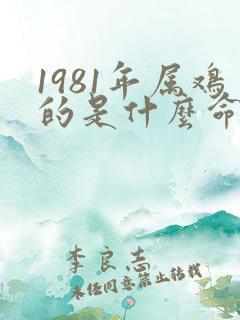 1981年属鸡
的是什麽命
李良志
未经同意禁止转载